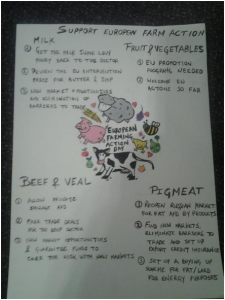 SUPPORT EUROPEAN FARM ACTION
MILK
① GET THE MILK SUPER LEVY
MONEY BACK TO THE SECTOR
② REVIEW THE EU INTERVENTION
PRICE FOR BUTTER & SMP
③ NEW MARKET OPPORTUNITIES
AND ELIMINATION OF
BARRIERS TO TRADE
FRUIT & VEGETABLES
① EU PROMOTION
PROGRAMS NEEDED
② WELCOME EU
ACTIONS SO FAR
EUROPEAN
FARMING
ACTION
DAY
BEEF & VEAL
① ALLOW PRIVATE
STORAGE AID
② FREE TRADE DEALS
③ NEW MARKET OPPORTUNITIES
& GUARANTEE FUNDS TO
TAKE THE RISK WITH NEW MARKETS
PIGMEAT
① REOPEN RUSSIAN MARKET
FOR FAT AND BY PRODUCTS
② FIND NEW MARKETS,
ELIMINATE BARRIERS TO
TRADE AND SET UP
EXPORT CREDIT INSURANCE
③ SET UP A BUYING UP
SCHEME FOR FAT/LARD
FOR ENERGY PURPOSES